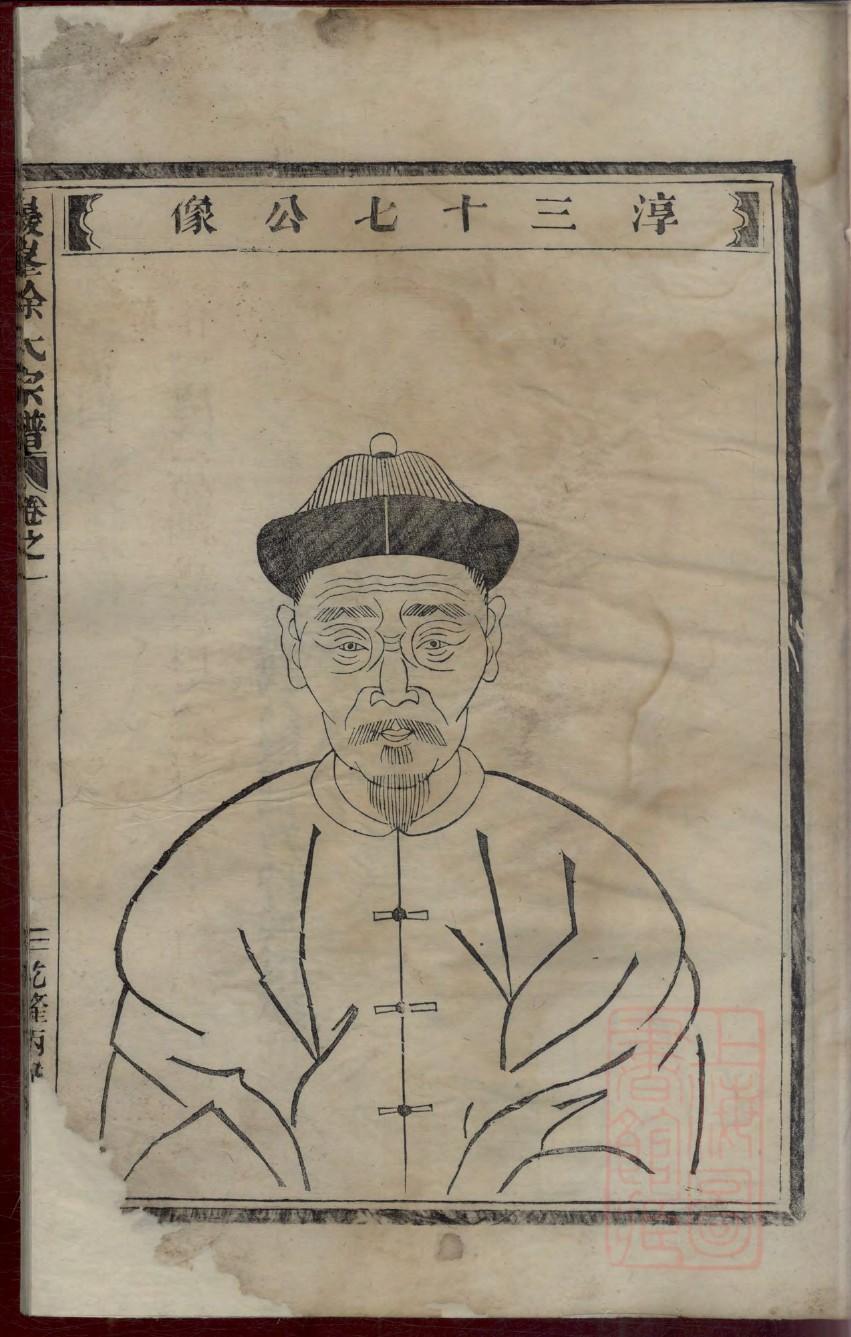 淳三十七公像
徐氏宗譜
卷之一
乾隆丙
上海圖書館藏